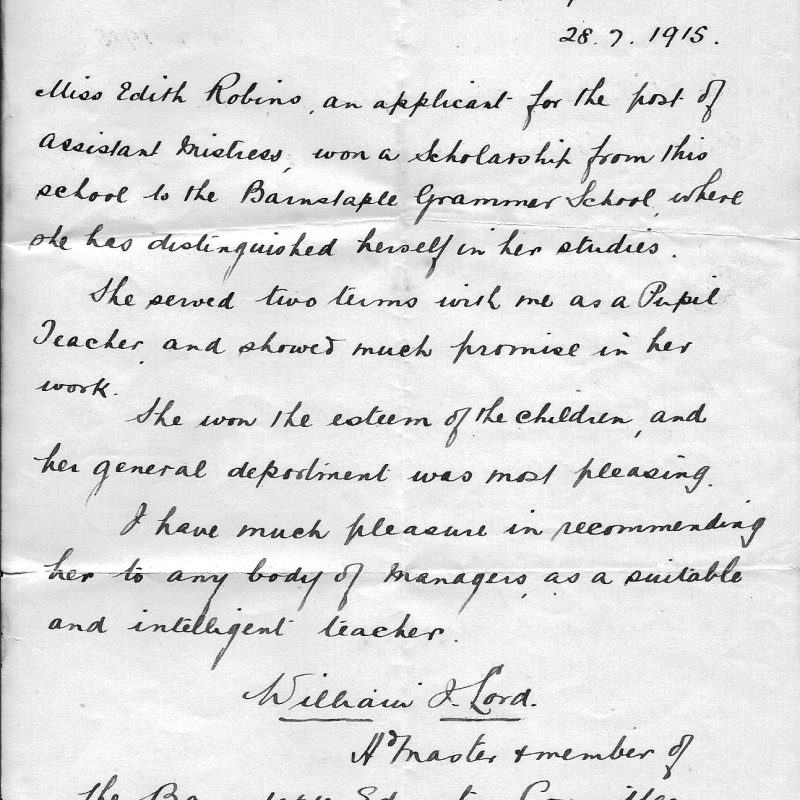 28.7.1915.
Miss Edith Robins, an applicant for the post of
Assistant Mistress, won a Scholarship from this
school to the Barnstaple Grammar School, where
she has distinguished herself in her studies.
She served two terms with me as a Pupil
Teacher, and showed much promise in her
work.
She won the esteem of the children, and
her general deportment was most pleasing.
I have much pleasure in recommending
her to any body of Managers, as a suitable
and intelligent teacher.
William J. Lord.
Hd Master & member of
the